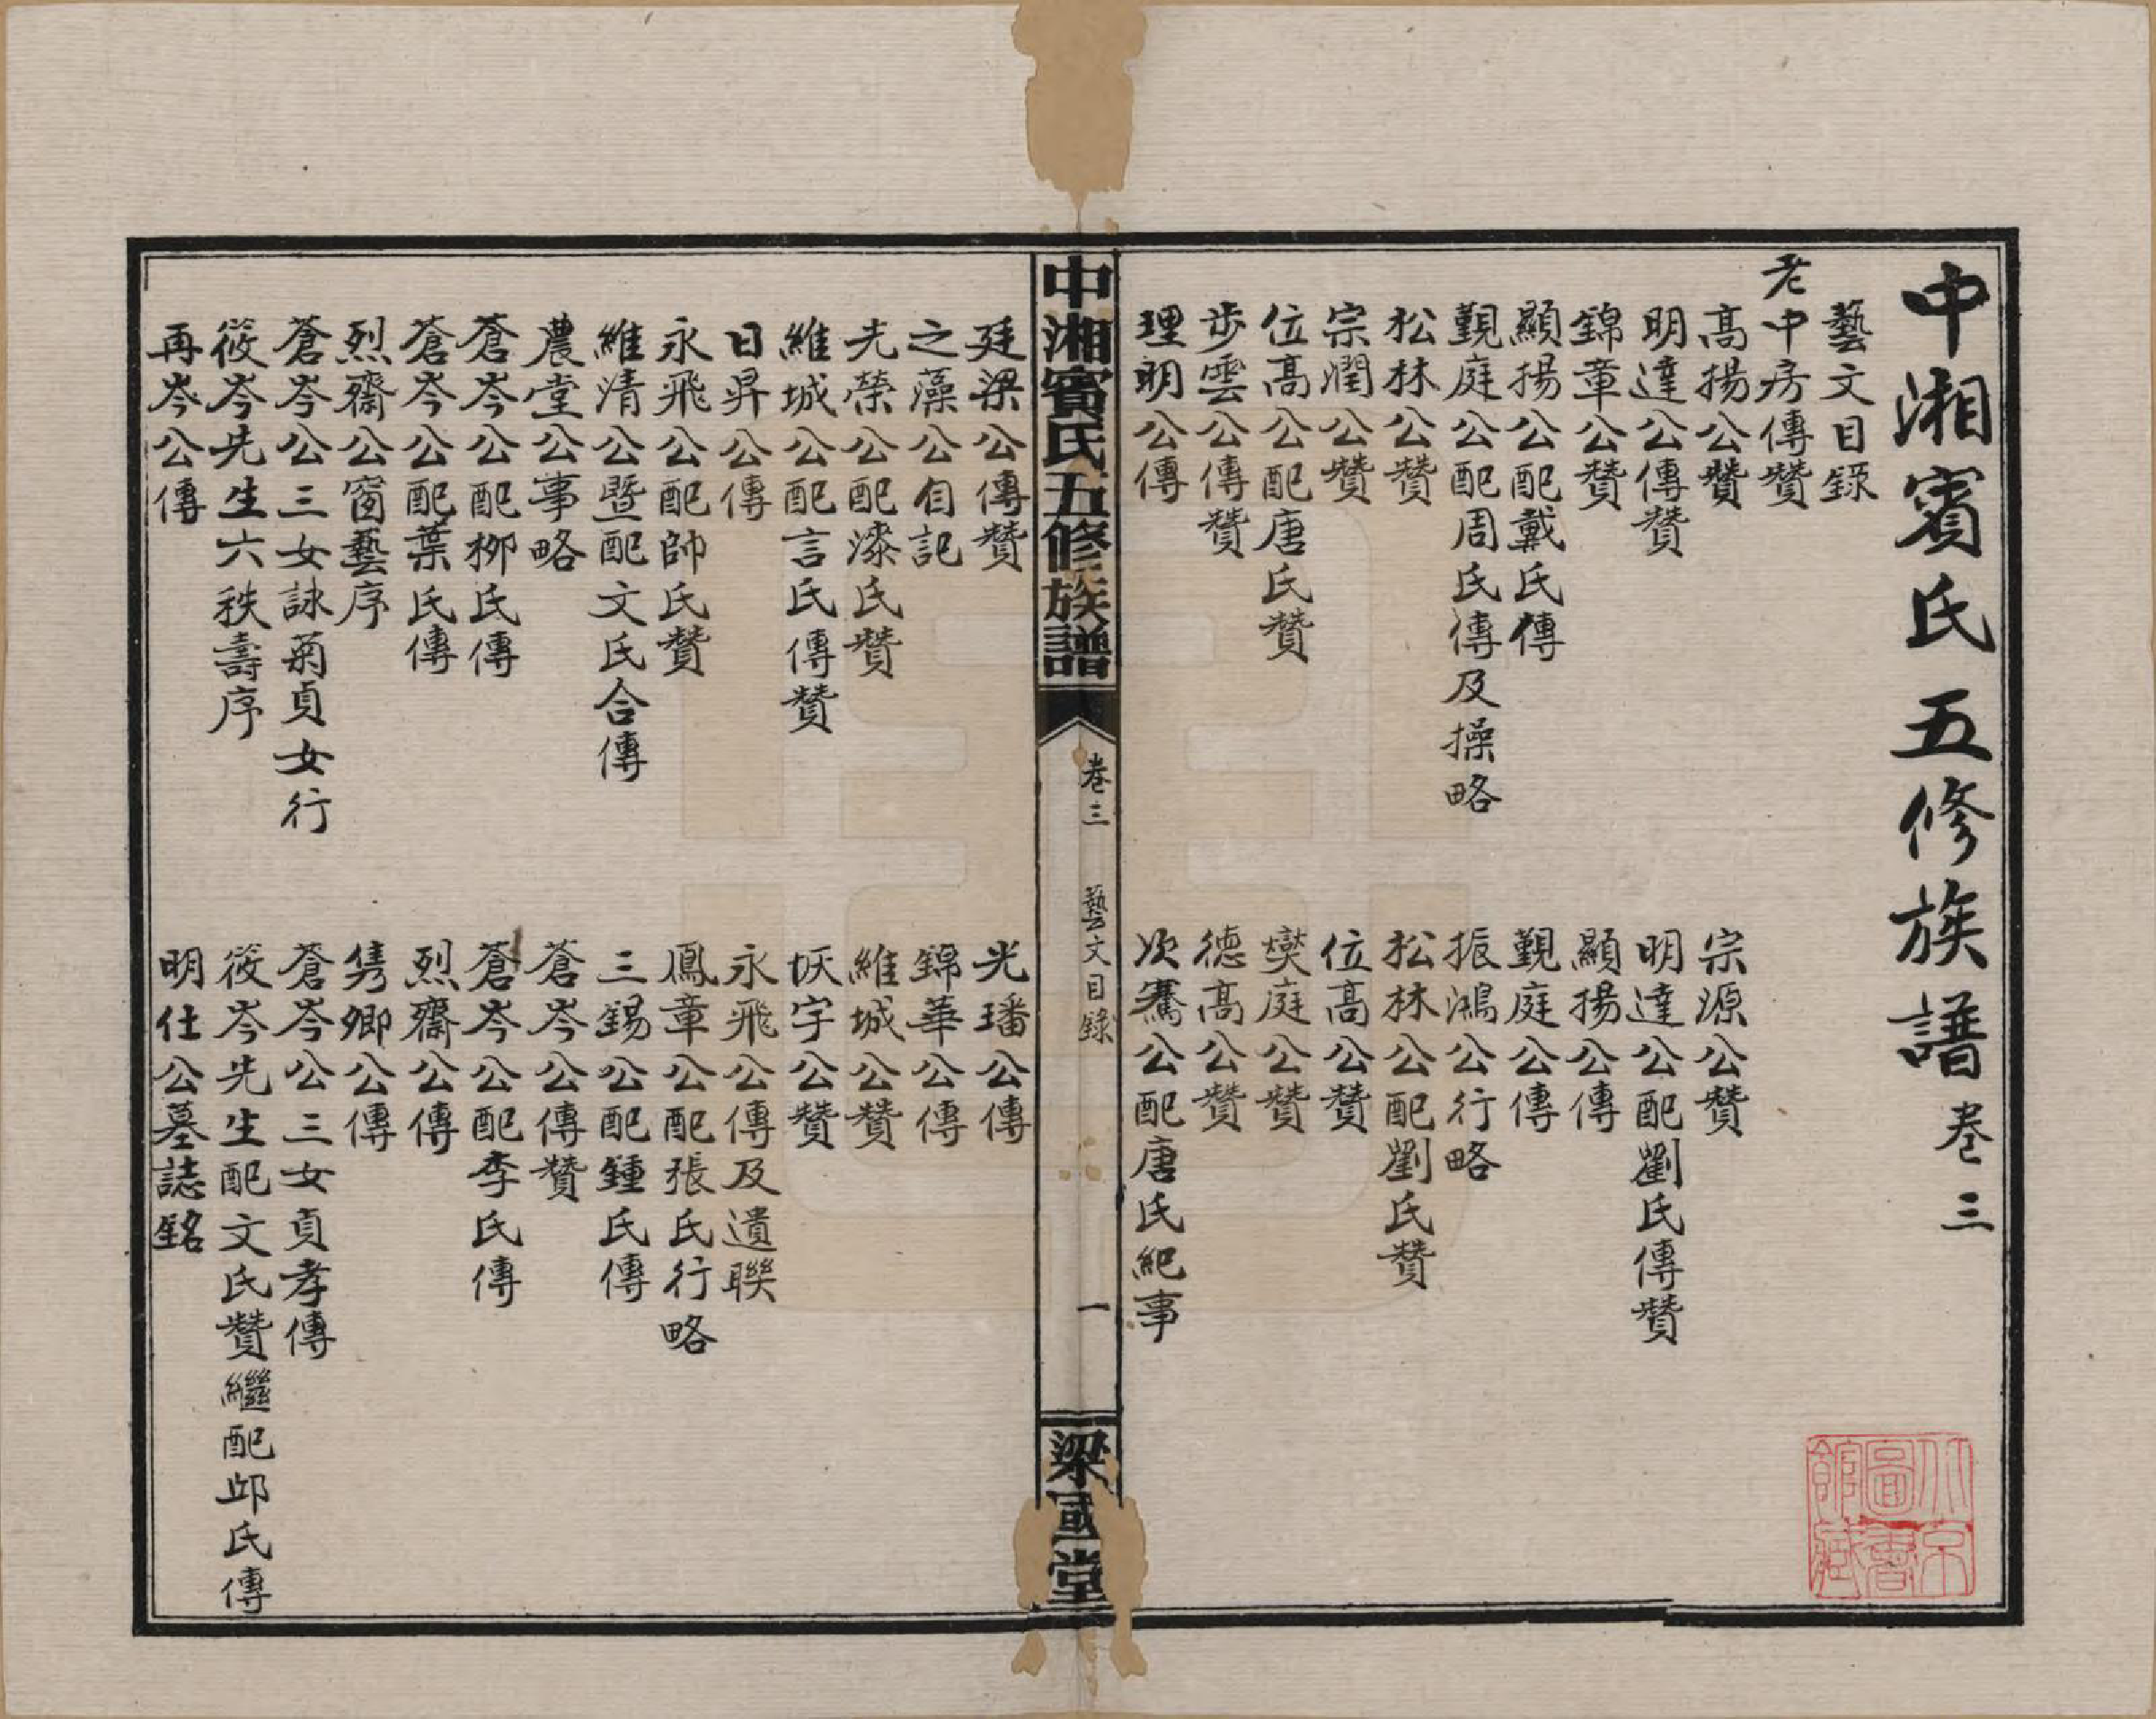 中湘賓氏五修族譜卷三
藝文目錄
老中房傳贊
高揚公贊
宗源公贊
明達公傳贊
明達公配劉氏傳贊
錦章公贊
顯揚公傳
顯揚公配戴氏傳
觐庭公傳
觐庭公配周氏傳及操略
振鴻公行略
松林公贊
松林公配劉氏贊
宗潤公贊
位高公贊
位高公配唐氏贊
爕庭公贊
步雲公傳贊
德高公贊
理明公傳
次騫公配唐氏紀事
中湘賓氏五修族譜
卷三
藝文目錄
一
梁國堂
廷梁公傳贊
光璠公傳
之藻公自記
錦華公傳
光榮公配漆氏贊
維城公贊
維城公配言氏傳贊
恢宇公贊
日昇公傳
永飛公傳及遺聯
永飛公配帥氏贊
鳳章公配張氏行略
維清公暨配文氏合傳
三錫公配鍾氏傳
農堂公事略
蒼岑公傳贊
蒼岑公配柳氏傳
蒼岑公配李氏傳
蒼岑公配葉氏傳
烈齋公傳
烈齋公窗藝序
雋卿公傳
蒼岑公三女詠菊貞女行
蒼岑公三女貞孝傳
筱岑先生六秩壽序
筱岑先生配文氏贊繼配邱氏傳
再岑公傳
明仕公墓誌銘
北京圖書館藏